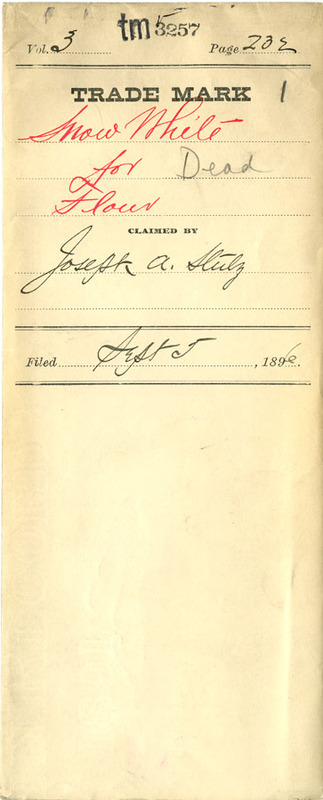 tm 3257
Vol. 3 Page 232
TRADE MARK 1
Snow White
for Dead
Flour
CLAIMED BY
Joseph A. Stulz
Filed Sept 5, 1896.